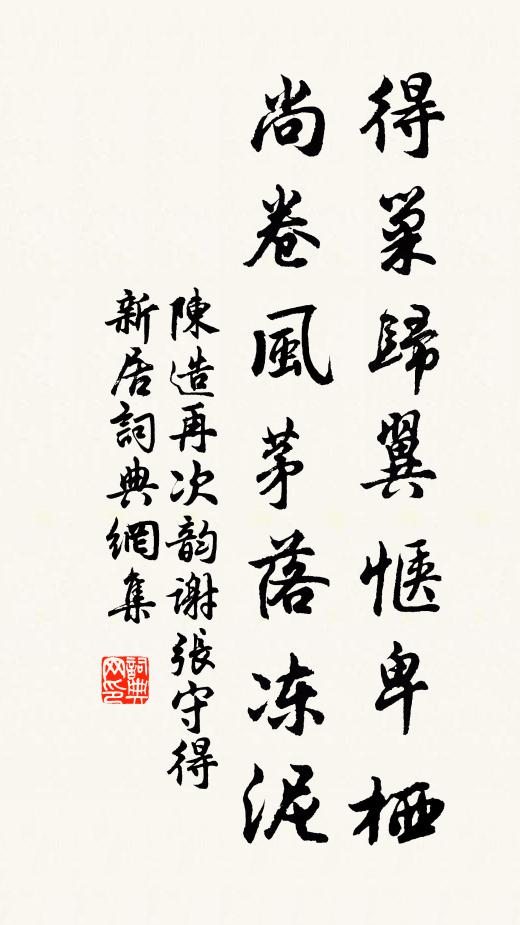 得巢歸翼愜卑栖
尚卷風茅落冻泥
陳造再次韵謝張守得
新居詞典網集
詞典网印